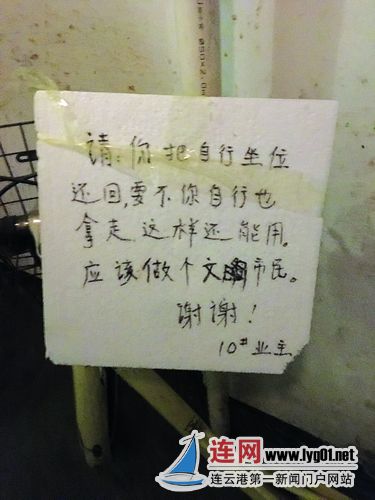 请:你把自行坐位
还回,要不你自行也
拿走.这样还能用。
应该做个文明市民。
谢谢!
10#业主
连网 www.lyg01.net
连云港第一新闻门户网站